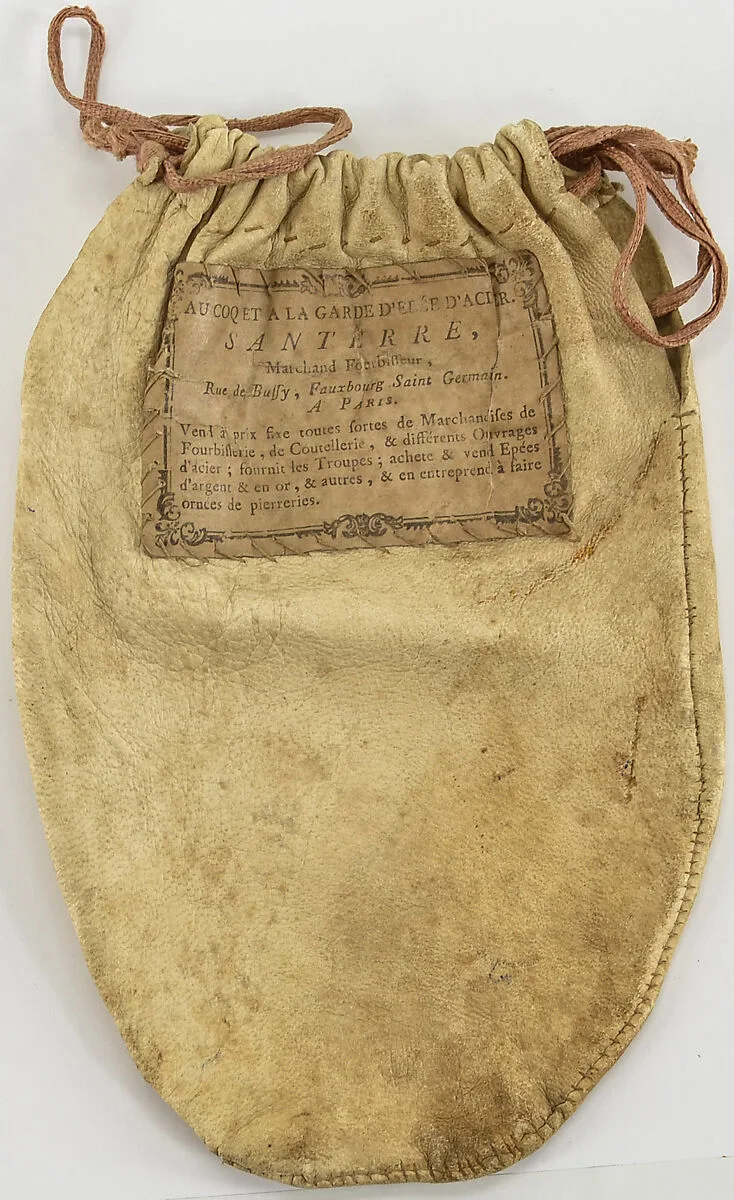 AU COQ ET A LA GARDE D'EPÉE D'ACIER.
SANTERRE,
Marchand Fourbisseur,
Rue de Bussy, Fauxbourg Saint Germain.
A PARIS.
Vend à prix fixe toutes sortes de Marchandises de
Fourbisserie, de Coutellerie, & différents Ouvrages
d'acier ; fournit les Troupes ; achete & vend Epées
d'argent & en or, & autres, & en entreprend à faire
ornées de pierreries.